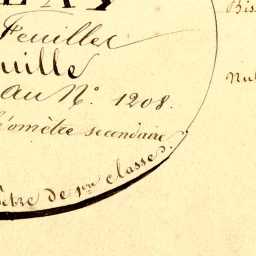 AY
Feuilles
uille
au N.º 1208.
éomètre secondaire
ètre de 1ère classe.
Bis
Nu